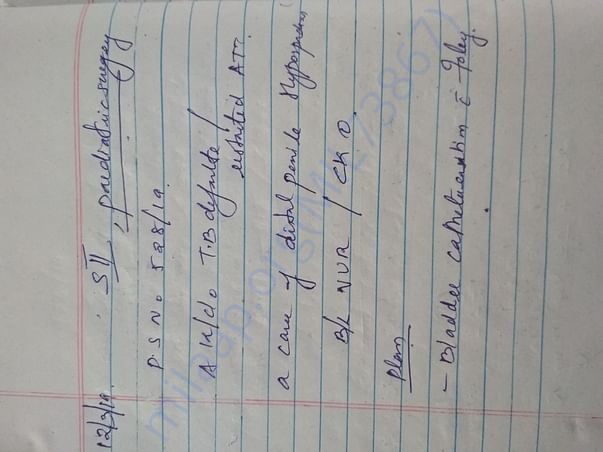 12/3/19
SII, paediatric surgery
P.S No 528/19
A K/c/o T.B defaulter /
restarted ATT.
a case of distal penile Hypospadias
B/L VUR / CKD
Plan
- Bladder catheterisation c̄ foley
milaap.org
3867)